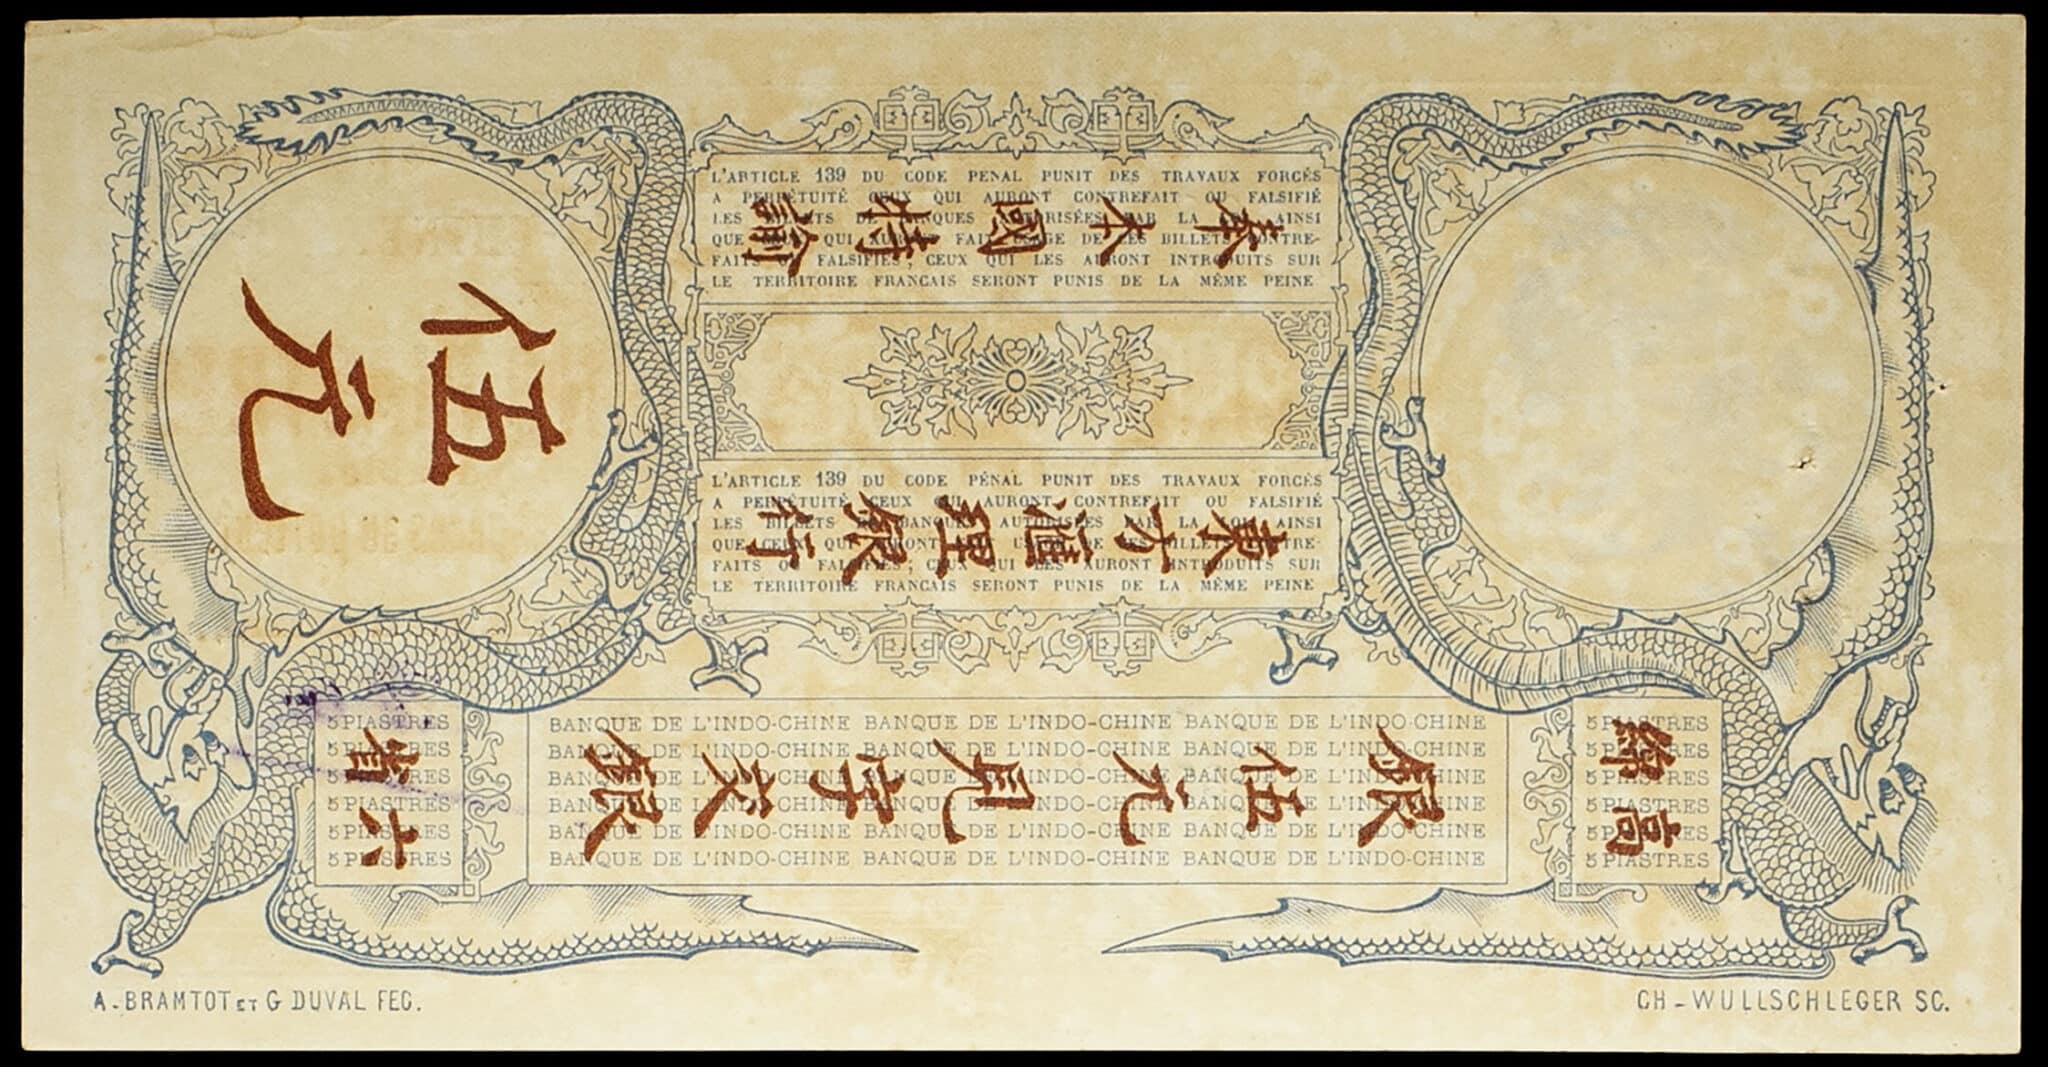 L'ARTICLE 139 DU CODE PENAL PUNIT DES TRAVAUX FORCÉS
A PERPÉTUITÉ CEUX QUI AURONT CONTREFAIT OU FALSIFIÉ
LES BILLETS DE BANQUES AUTORISÉES PAR LA LOI AINSI
QUE CEUX QUI AURONT FAIT USAGE DE CES BILLETS CONTRE-
FAITS OU FALSIFIÉS; CEUX QUI LES AURONT INTRODUITS SUR
LE TERRITOIRE FRANCAIS SERONT PUNIS DE LA MÊME PEINE
奉本國特諭
伍元
L'ARTICLE 139 DU CODE PÉNAL PUNIT DES TRAVAUX FORCÉS
A PERPÉTUITÉ CEUX QUI AURONT CONTREFAIT OU FALSIFIÉ
LES BILLETS DE BANQUES AUTORISÉES PAR LA LOI AINSI
QUE CEUX QUI AURONT FAIT USAGE DE CES BILLETS CONTRE-
FAITS OU FALSIFIÉS; CEUX QUI LES AURONT INTRODUITS SUR
LE TERRITOIRE FRANCAIS SERONT PUNIS DE LA MÊME PEINE
東方滙理銀行
5 PIASTRES
5 PIASTRES
5 PIASTRES
5 PIASTRES
5 PIASTRES
5 PIASTRES
六省
BANQUE DE L'INDO-CHINE BANQUE DE L'INDO-CHINE BANQUE DE L'INDO-CHINE
BANQUE DE L'INDO-CHINE BANQUE DE L'INDO-CHINE BANQUE DE L'INDO-CHINE
BANQUE DE L'INDO-CHINE BANQUE DE L'INDO-CHINE BANQUE DE L'INDO-CHINE
BANQUE DE L'INDO-CHINE BANQUE DE L'INDO-CHINE BANQUE DE L'INDO-CHINE
BANQUE DE L'INDO-CHINE BANQUE DE L'INDO-CHINE BANQUE DE L'INDO-CHINE
BANQUE DE L'INDO-CHINE BANQUE DE L'INDO-CHINE BANQUE DE L'INDO-CHINE
銀伍元見字交銀
5 PIASTRES
5 PIASTRES
5 PIASTRES
5 PIASTRES
5 PIASTRES
5 PIASTRES
高綿
A_BRAMTOT ET G DUVAL FEC.
CH_WULLSCHLEGER SC.